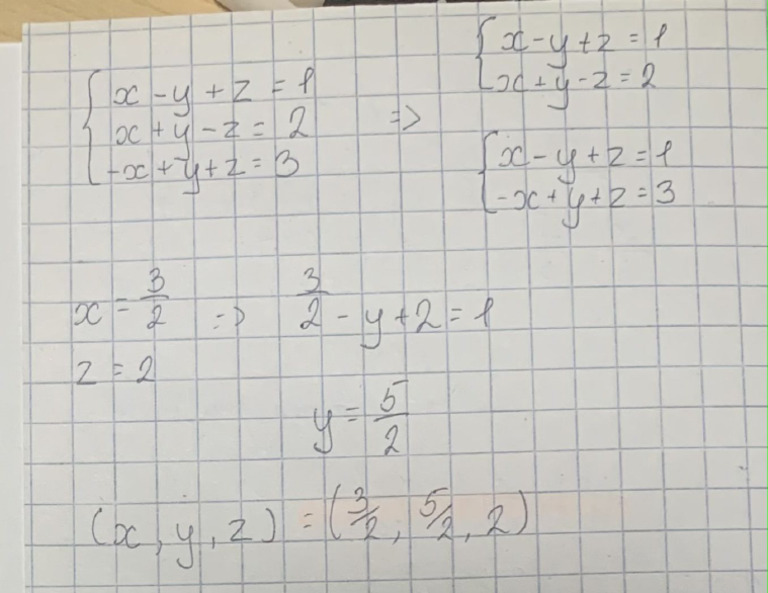 x - y + z = 1
x + y - z = 2
-x + y + z = 3
=>
x - y + z = 1
x + y - z = 2
x - y + z = 1
-x + y + z = 3
x = 3/2 => 3/2 - y + 2 = 1
z = 2
y = 5/2
(x, y, z) = (3/2, 5/2, 2)